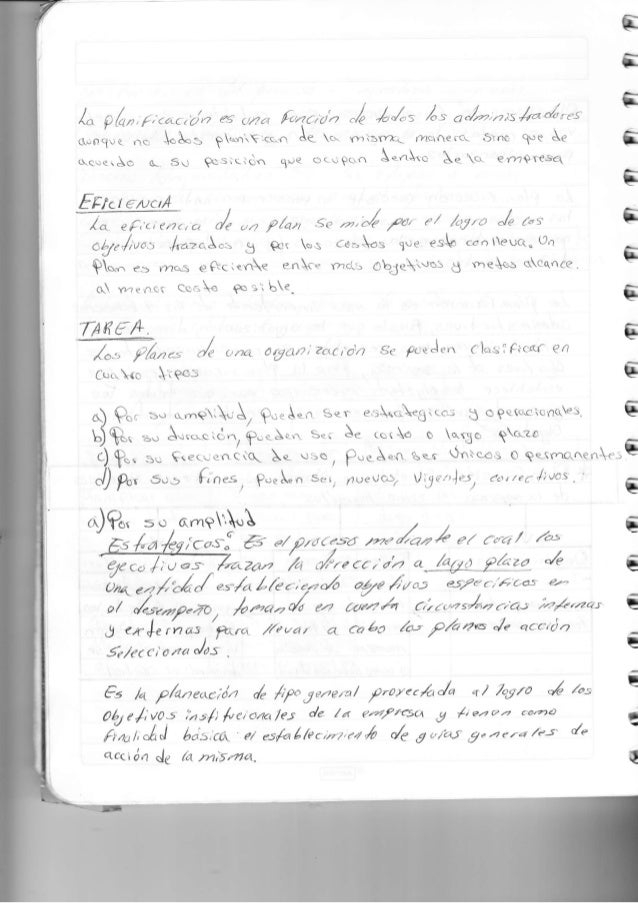 La planificación es una función de todos los administradores
aunque no todos planifican de la misma manera sino que de
acuerdo a su posición que ocupan dentro de la empresa
EFICIENCIA
La eficiencia de un plan se mide por el logro de los
objetivos trazados y por los costos que esto conlleva. Un
Plan es mas eficiente entre más objetivos y metas alcance.
al menor costo posible.
TAREA.
Los Planes de una organización se pueden clasificar en
Cuatro tipos
a) Por su amplitud, Pueden ser estrategicas y operacionales.
b) Por su duración, Pueden ser de corto o largo plazo
c) Por su frecuencia de uso, Pueden ser Unicos o permanentes
d) Por sus fines, Pueden ser, nuevos, Vigentes, correctivos.
a) Por su amplitud
Estrategicos: Es el proceso mediante el cual los
ejecutivos trazan la dirección a largo plazo de
una entidad estableciendo objetivos especificos en
el desempeño, tomando en cuenta circunstancias internas
y externas para llevar a cabo los planes de acción
Seleccionados.
Es la planeación de tipo general proyectada al logro de los
objetivos institucionales de la empresa y tienen como
finalidad básica el establecimiento de guias generales de
acción de la misma.